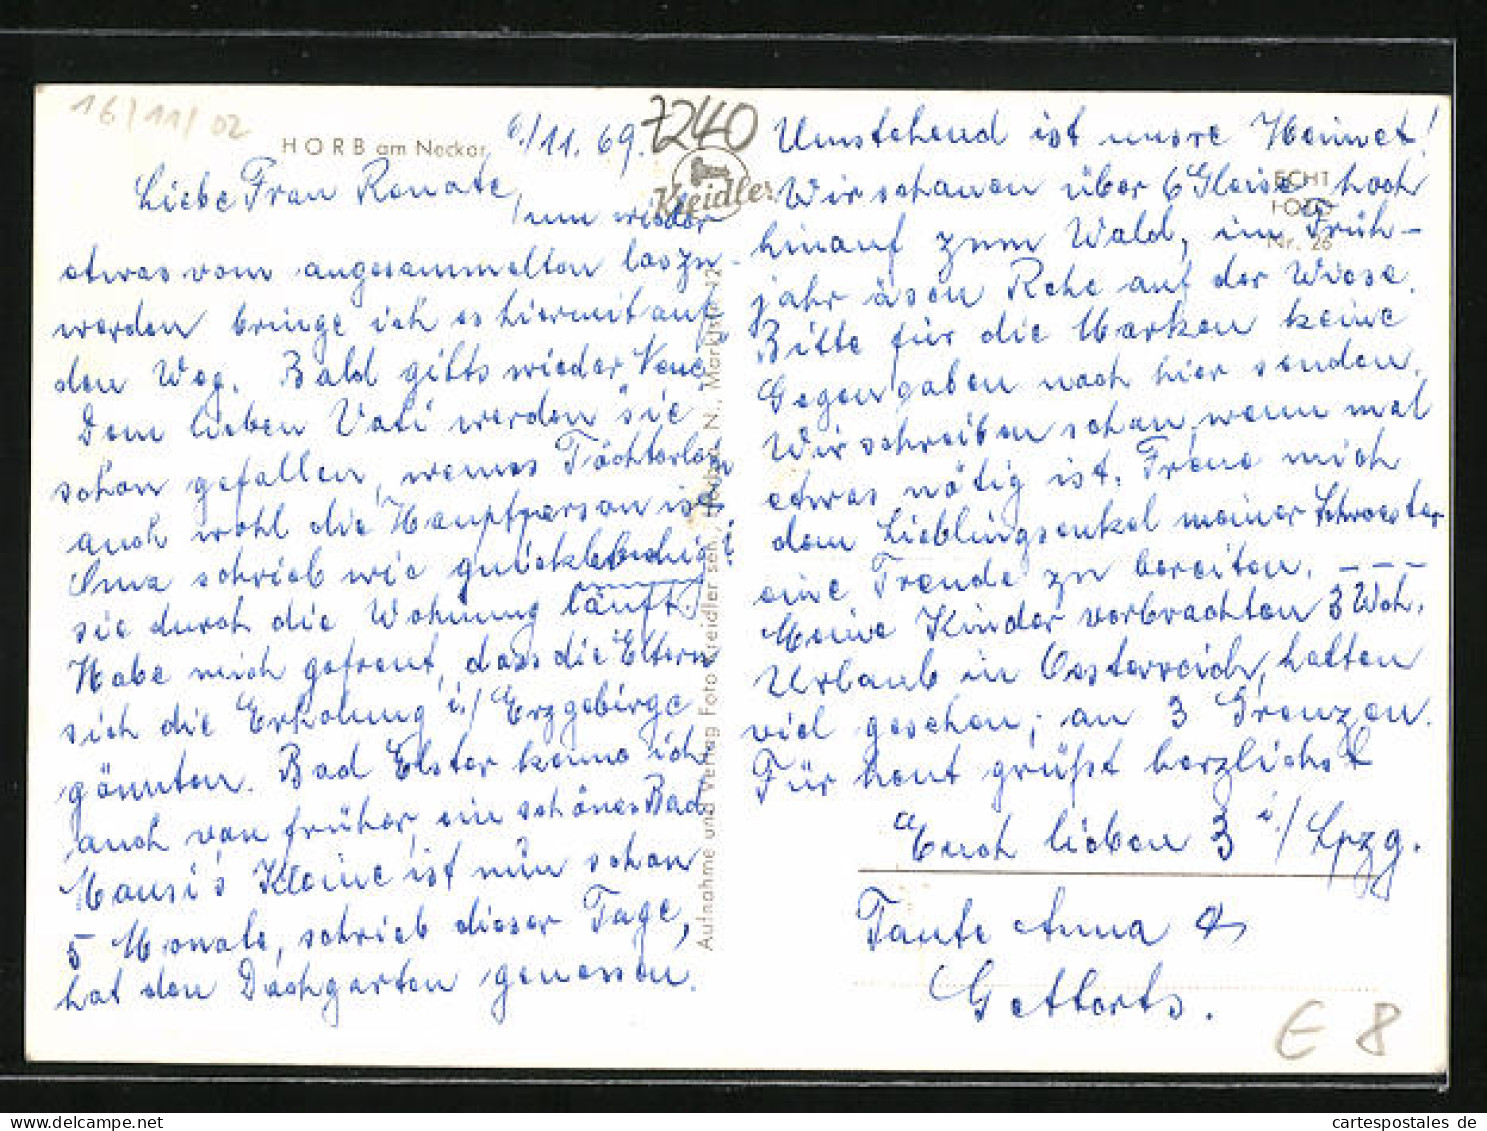 16/11/02
HORB am Neckar
6./11. 69.
7240
Kreidler
Liebe Frau Renate,
um wieder
etwas vom angesammelten loszu-
werden bringe ich es hiermit auf
den Weg. Bald gilts wieder Neue.
Dem lieben Vati werden sie
schon gefallen, wenns Töchterlein
auch wohl die Hauptperson ist.
Oma schrieb wie quicklebendig
sie durch die Wohnung läuft!
Habe mich gefreut, dass die Eltern
sich die Erholung i./ Erzgebirge
gönnten. Bad Elster kenne ich
auch von früher, ein schönes Bad
Mausi's Kleine ist nun schon
5 Monate, schrieb dieser Tage,
hat den Dachgarten genossen.
Aufnahme und Verlag Foto Kreidler sen., Horb a. N., Marktstr. 12
ECHT
FOTO
Nr. 26
Umstehend ist unsre Heimat!
Wir schauen über 6 Gleise hoch
hinauf zum Wald, im Früh-
jahr äsen Rehe auf der Wiese.
Bitte für die Marken keine
Gegengaben nach hier senden.
Wir schreiben schon, wenn mal
etwas nötig ist. Freue mich
dem Lieblingsenkel meiner Schwester
eine Freude zu bereiten. - - -
Meine Kinder verbrachten 3 Woch.
Urlaub in Oesterreich, hatten
viel gesehen, an 3 Grenzen.
Für heut grüßt herzlichst
Euch lieben 3 i./ Lpzg.
Tante Anna &
E 8
cartespostales de